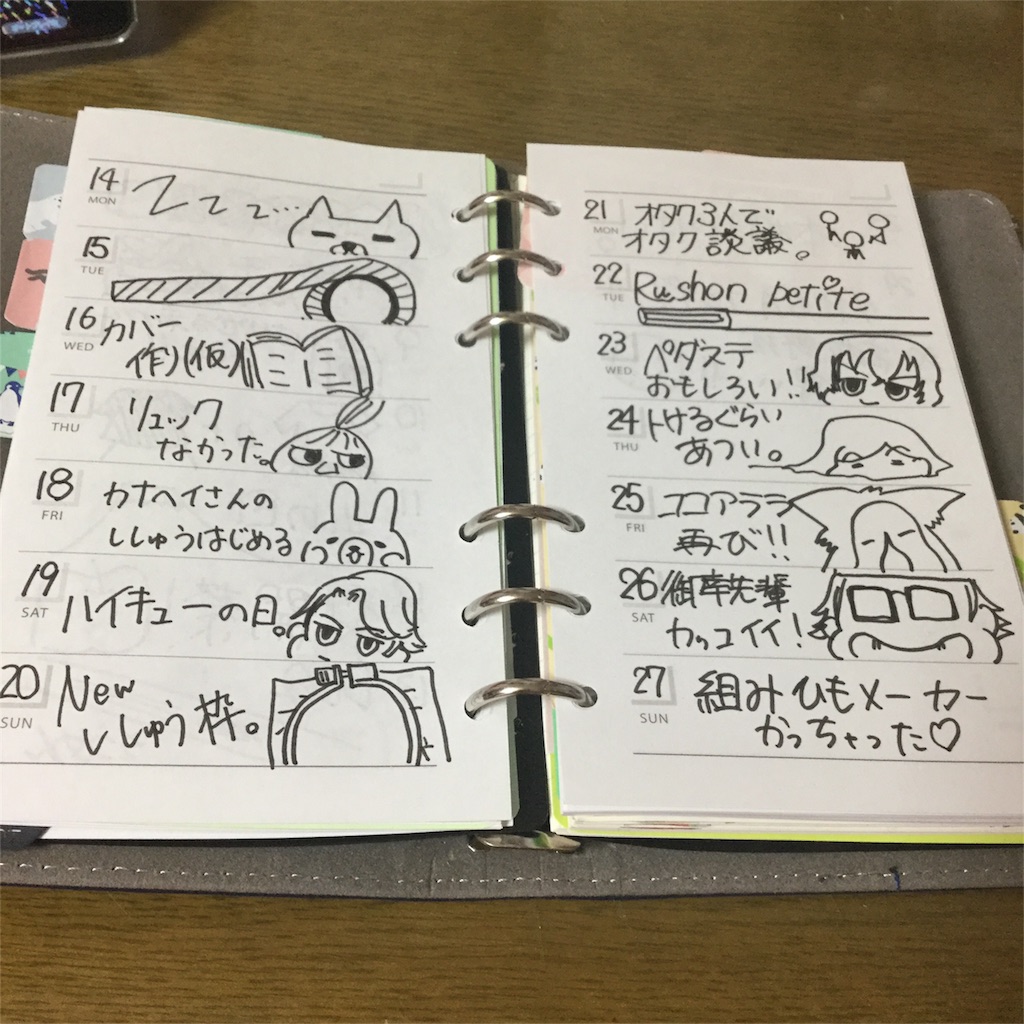 14
MON
Zzz…
15
TUE
16
WED
カバー
作り(仮)
17
THU
リュック
なかった。
18
FRI
カナヘイさんの
ししゅうはじめる
19
SAT
ハイキューの日。
20
SUN
New
ししゅう枠。
21
MON
オタク3人で
オタク談議。
22
TUE
Rushon petite
23
WED
ペダステ
おもしろい!!
24
THU
トけるぐらい
あつい。
25
FRI
ココアララ
再び!!
26
SAT
御堂先輩
カッコイイ!
27
SUN
組みひもメーカー
かっちゃった♡